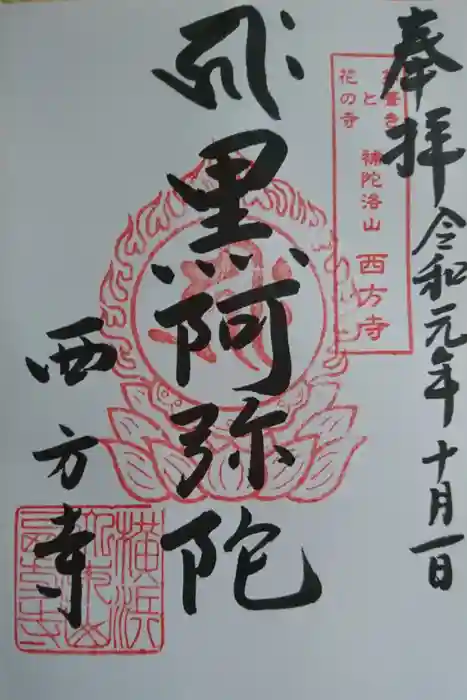 奉拝 令和元年十月一日
茅葺き
と
花の寺
補陀洛山 西方寺
黒阿弥陀
西方寺
横浜